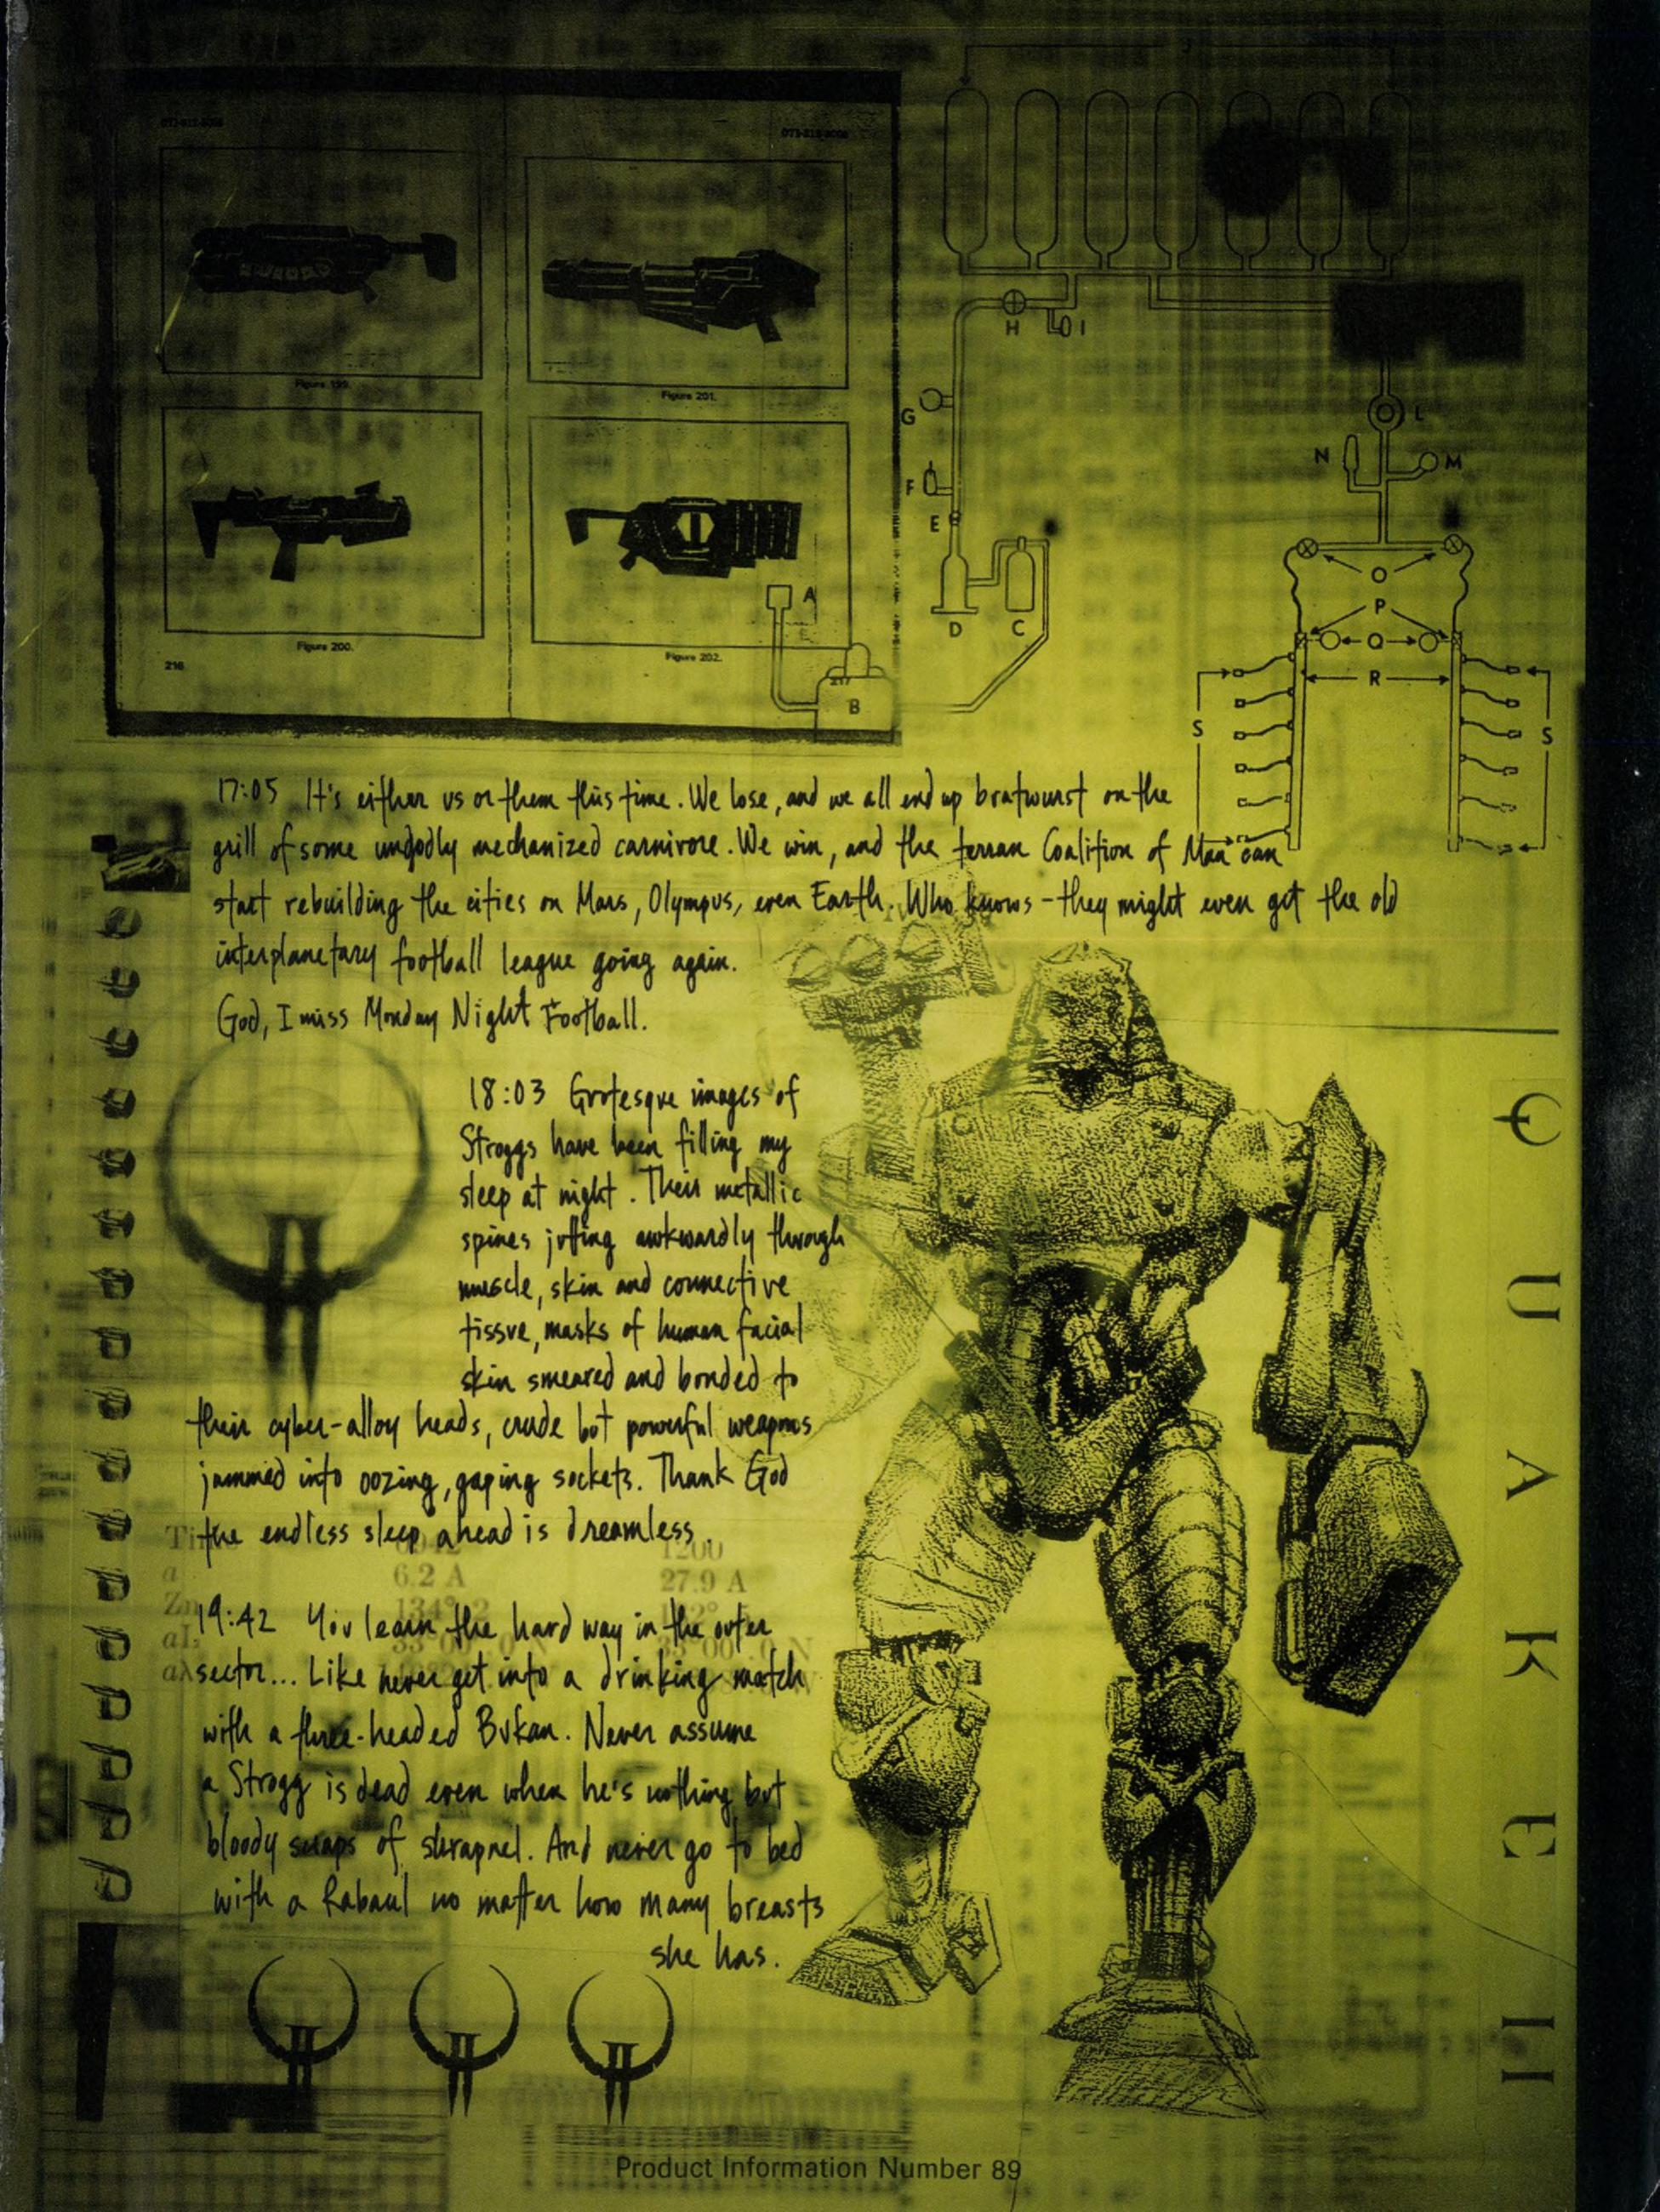 Figure 199.
Figure 201.
Figure 200.
Figure 202.
216
217
A
B
C
D
E
F
G
H
I
L
N
M
O
P
Q
R
S
S
17:05 It's either us or them this time. We lose, and we all end up bratwurst on the
grill of some ungodly mechanized carnivore. We win, and the terran Coalition of Man can
start rebuilding the cities on Mars, Olympus, even Earth. Who knows - they might even get the old
interplanetary football league going again.
God, I miss Monday Night Football.
18:03 Grotesque images of
Stroggs have been filling my
sleep at night. Their metallic
spines jutting awkwardly through
muscle, skin and connective
tissue, masks of human facial
skin smeared and bonded to
their cyber-alloy heads, crude but powerful weapons
jammed into oozing, gaping sockets. Thank God
the endless sleep ahead is dreamless.
1200
6.2 A
27.9 A
19:42 You learn the hard way in the outer
sector... Like never get into a drinking match
with a three-headed Bukan. Never assume
a Strogg is dead even when he's nothing but
bloody scraps of shrapnel. And never go to bed
with a Rabaul no matter how many breasts
she has.
QUAKE II
Product Information Number 89